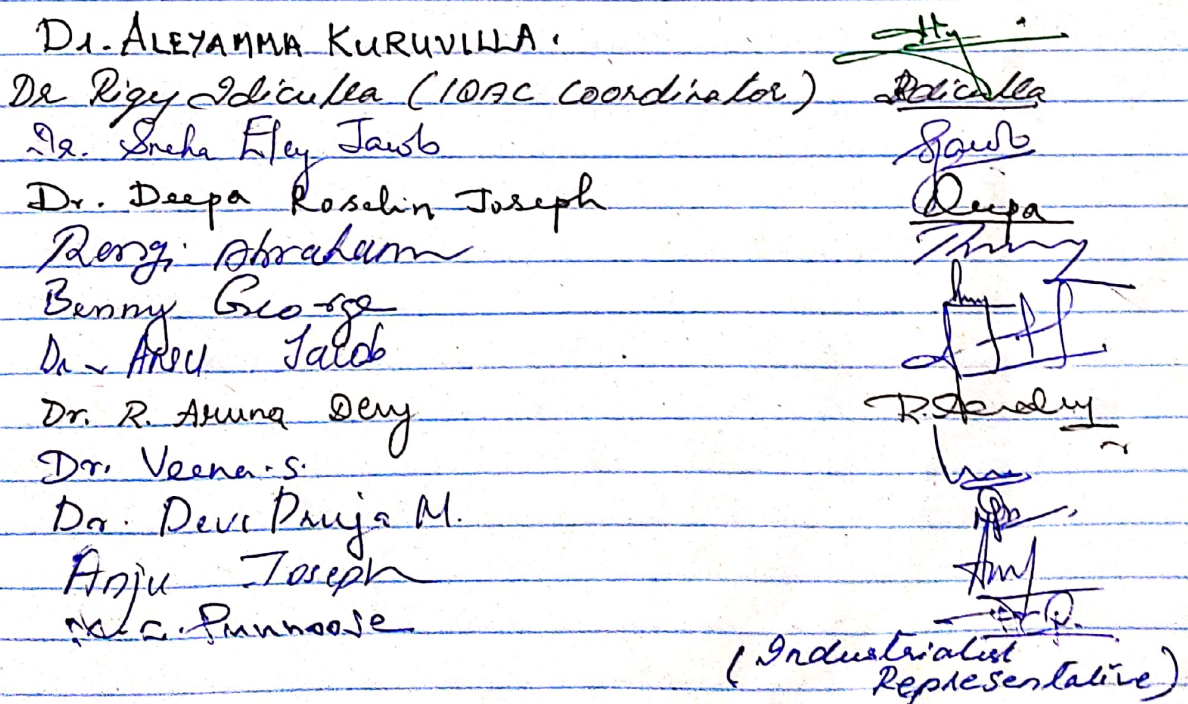 Dr. ALEYAMMA KURUVILLA.
Dr Rigy Idiculla (IQAC Coordinator) Idiculla
Dr. Sneha Eley Jacob SJacob
Dr. Deepa Roselin Joseph Deepa
Rengi Abraham
Benny George
Dr. Ansu Jacob
Dr. R. Aruna Devy
Dr. Veena.S.
Dr. Devi Druja M.
Anju Joseph Anj
Punnoose
(Industrialist
Representative)